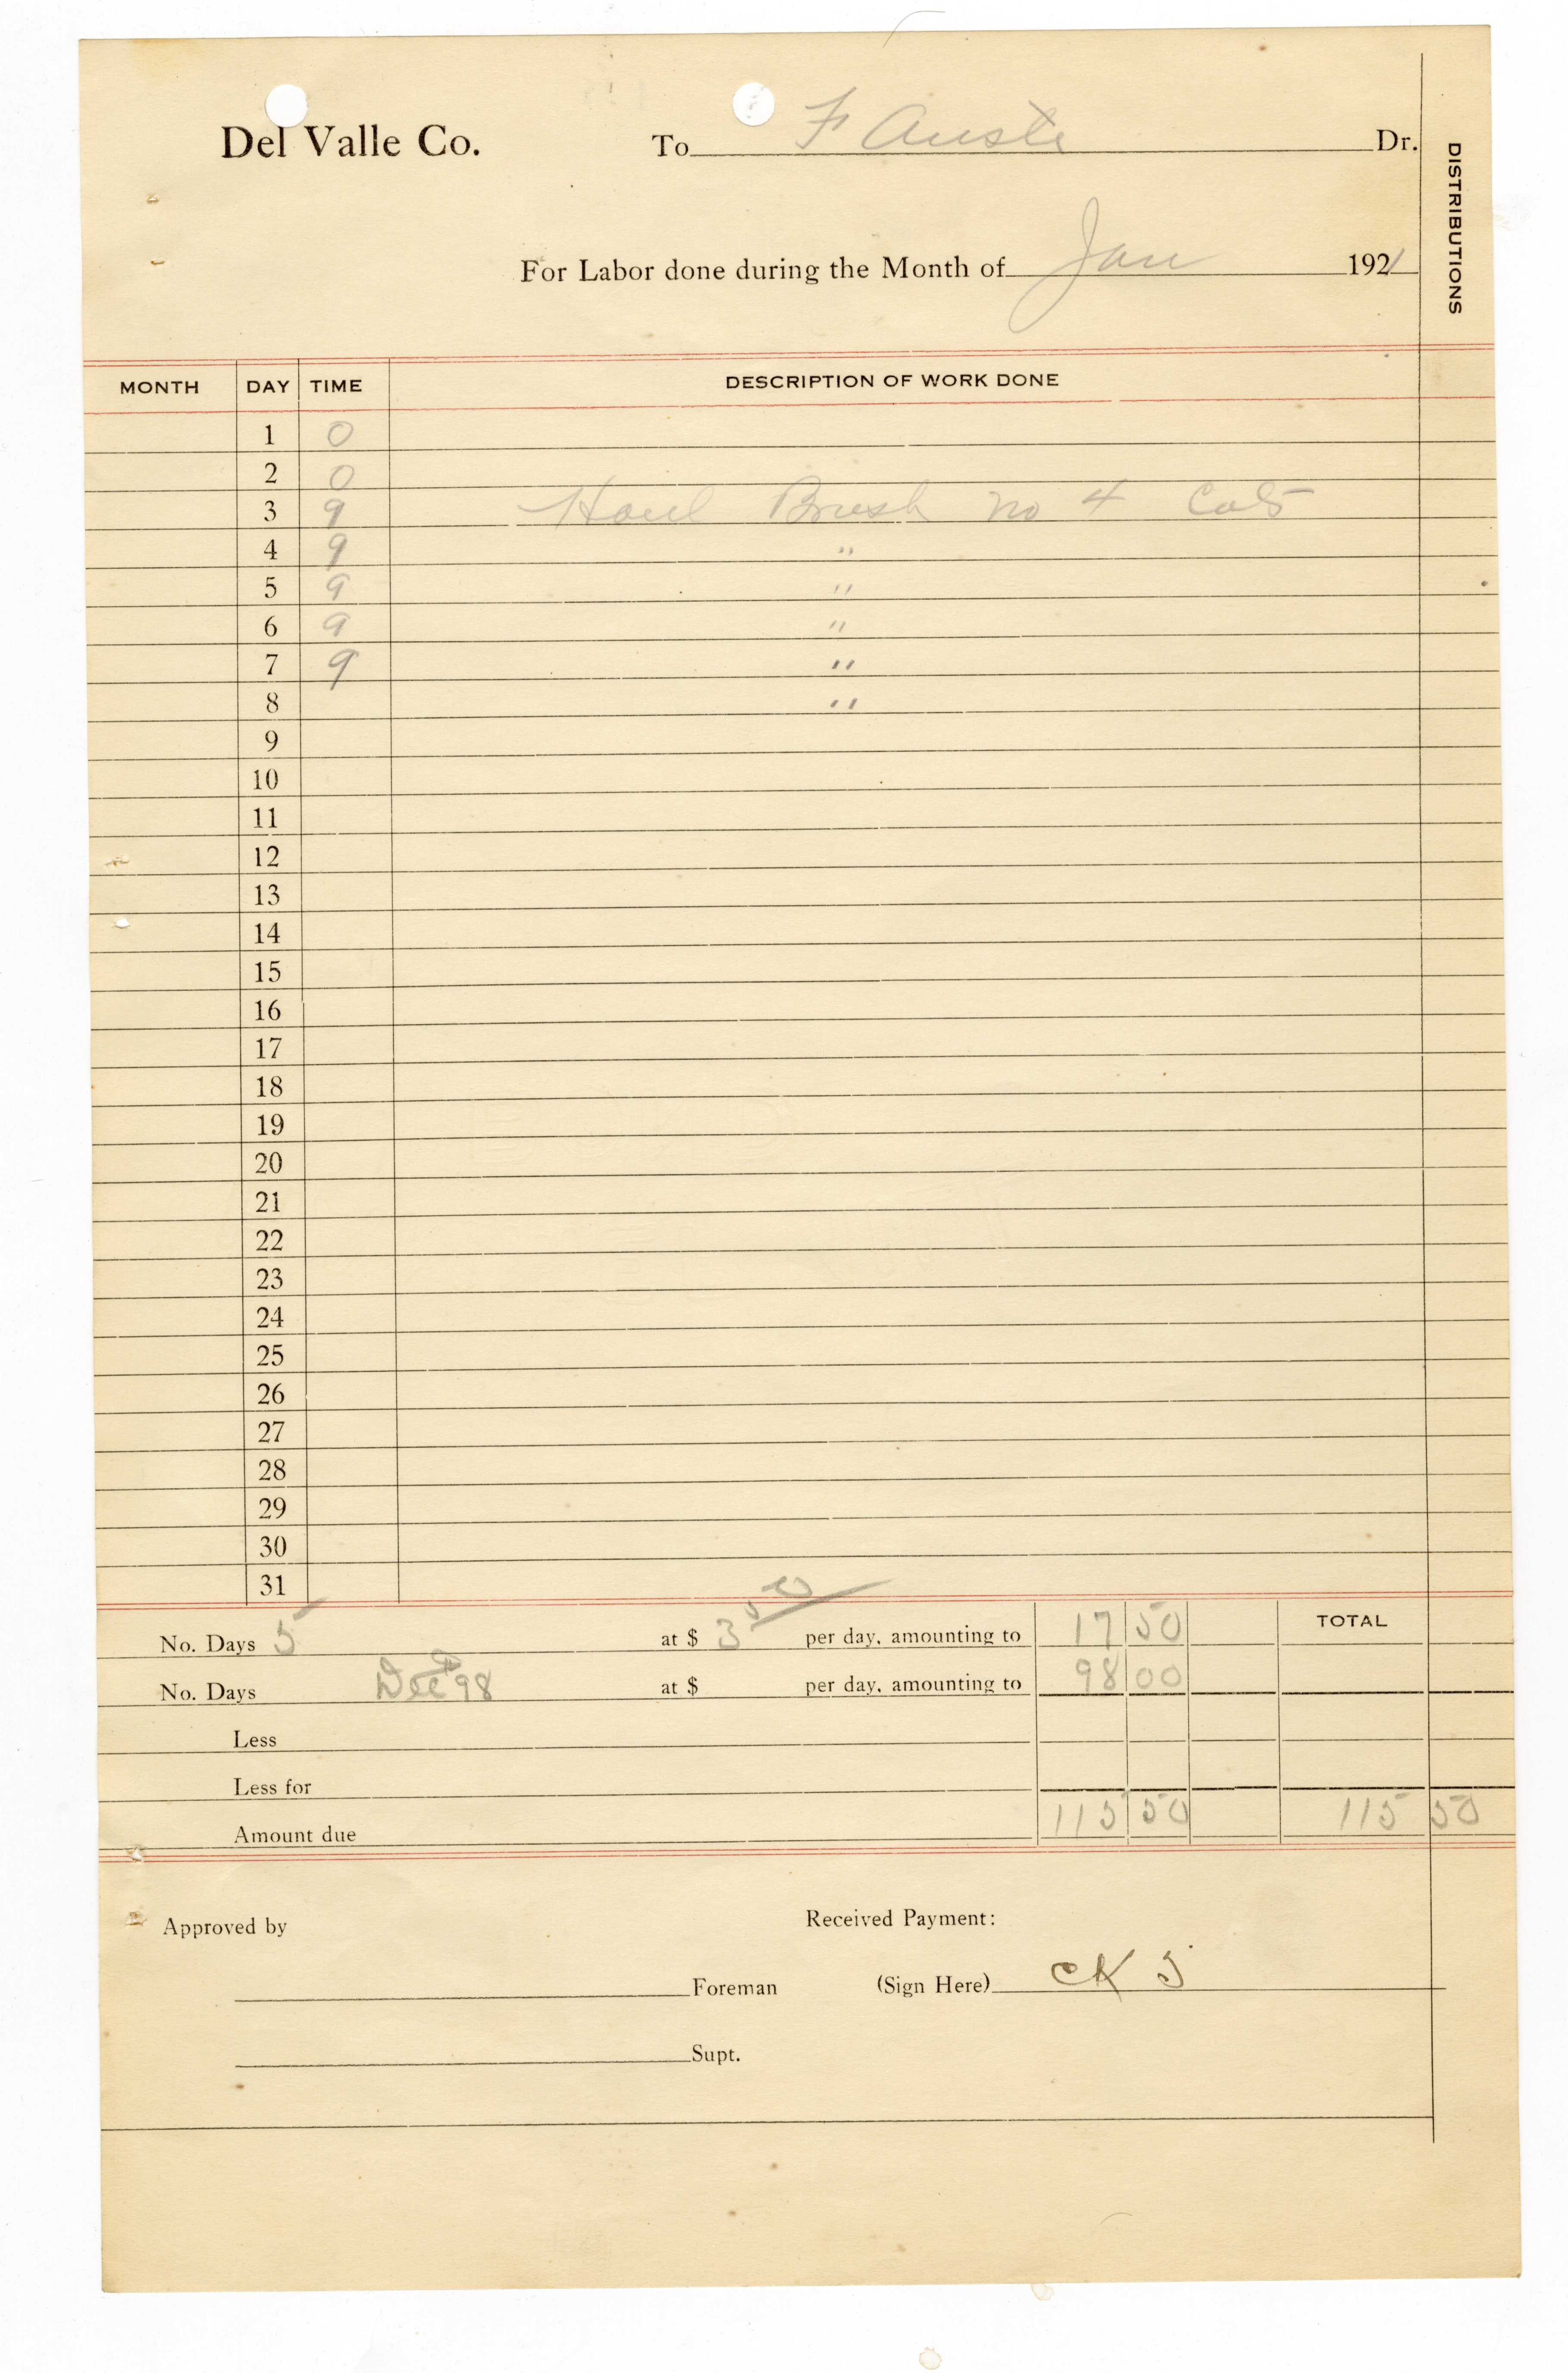 Del Valle Co. To F Auste Dr.
DISTRIBUTIONS
For Labor done during the Month of Jan 1921
MONTH DAY TIME DESCRIPTION OF WORK DONE
1 0
2 0
3 9 Haul Brush no 4 Cols
4 9 "
5 9 "
6 9 "
7 9 "
8 "
9
10
11
12
13
14
15
16
17
18
19
20
21
22
23
24
25
26
27
28
29
30
31
No. Days 5 at $ 3 50 per day, amounting to 17 50 TOTAL
No. Days Dec 98 at $ per day, amounting to 98 00
Less
Less for
Amount due 115 50 115 50
Approved by Received Payment:
Foreman (Sign Here) CK 5
Supt.